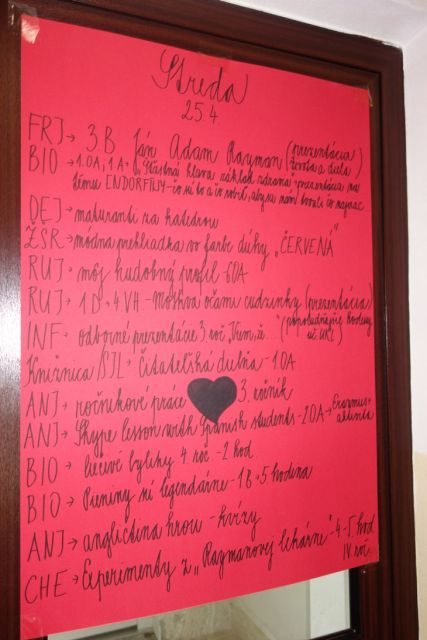 Streda
25.4.
FRJ → 3.B Ján Adam Rayman (prezentácia)
života a diela
BIO → 1.0A, 1.A → "Šťastná hlava základ zdravia" - prezentácia na
tému ENDORFÍNY - čo sú to a čo robiť, aby sa nám tvorili čo najviac
DEJ → maturanti za katedrou
ŽŠR → módna prehliadka vo farbe dúhy „ČERVENÁ"
RUJ → môj hudobný profil - 6.0A
RUJ → 1.D + 4.VH - Moskva očami cudzinky (prezentácia)
INF → odborné prezentácie 3. roč. „Viem, že..." (popoludňajšie hodiny
uč. VKL)
Knižnica /SJL → Čitateľská dielňa - 1.0A
ANJ → ročníkové práce 3. ročník
ANJ → Skype lesson with Spanish students - 2.0A → Erasmus+
aktivita
BIO → liečivé bylinky 4. roč. - 2. hod
BIO → Pieniny sú legendárne - 1.B → 5 hodina
ANJ → angličtina hrou - kvízy
CHE → Experimenty z „Raymanovej lekárne" - 4. - 5. hod
IV. roč.